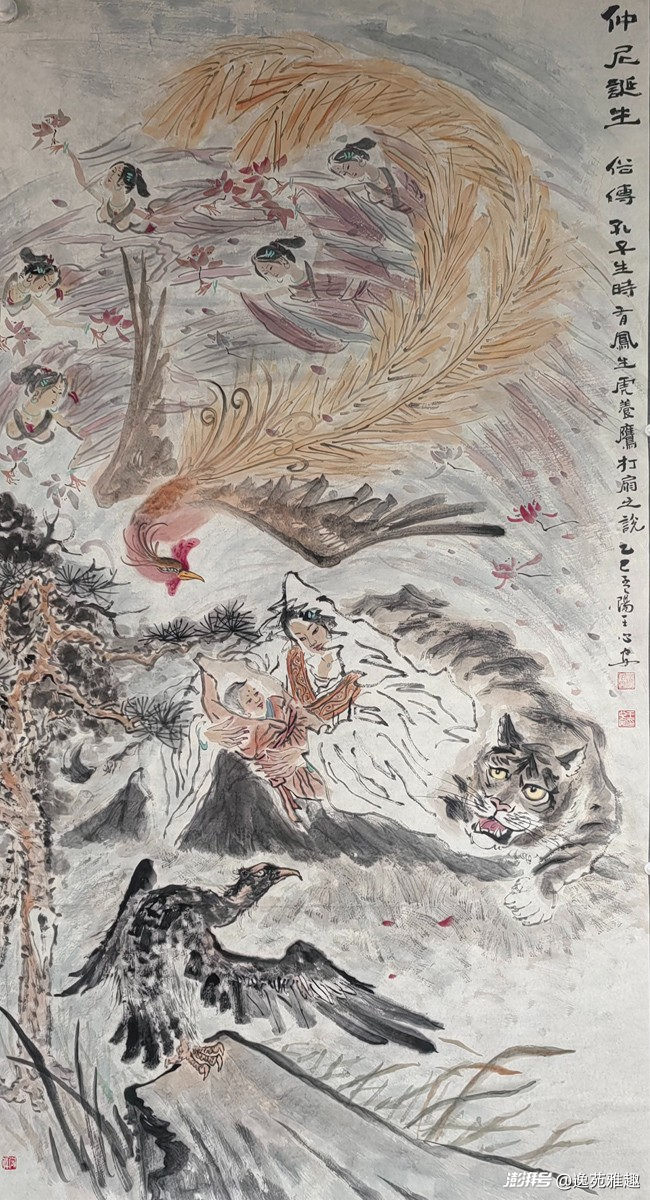 仲尼誕生 俗傳孔子生時有鳳生虎養鷹打扇之說 乙巳
陽王心安
澎湃号@逸苑雅趣